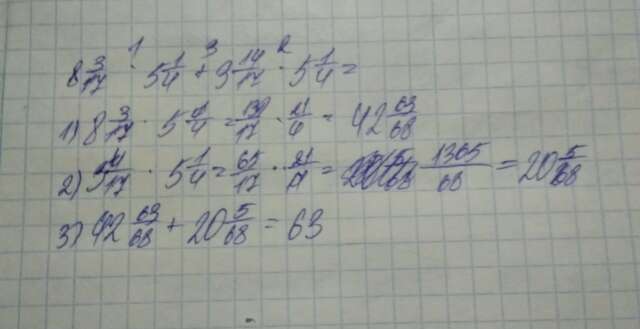 8 3/17 · 5 1/4 + 3 14/17 · 5 1/4 =
1) 8 3/17 · 5 1/4 = 139/17 · 21/4 = 42 63/68
2) 3 14/17 · 5 1/4 = 65/17 · 21/4 = 1365/68 = 20 5/68
3) 42 63/68 + 20 5/68 = 63